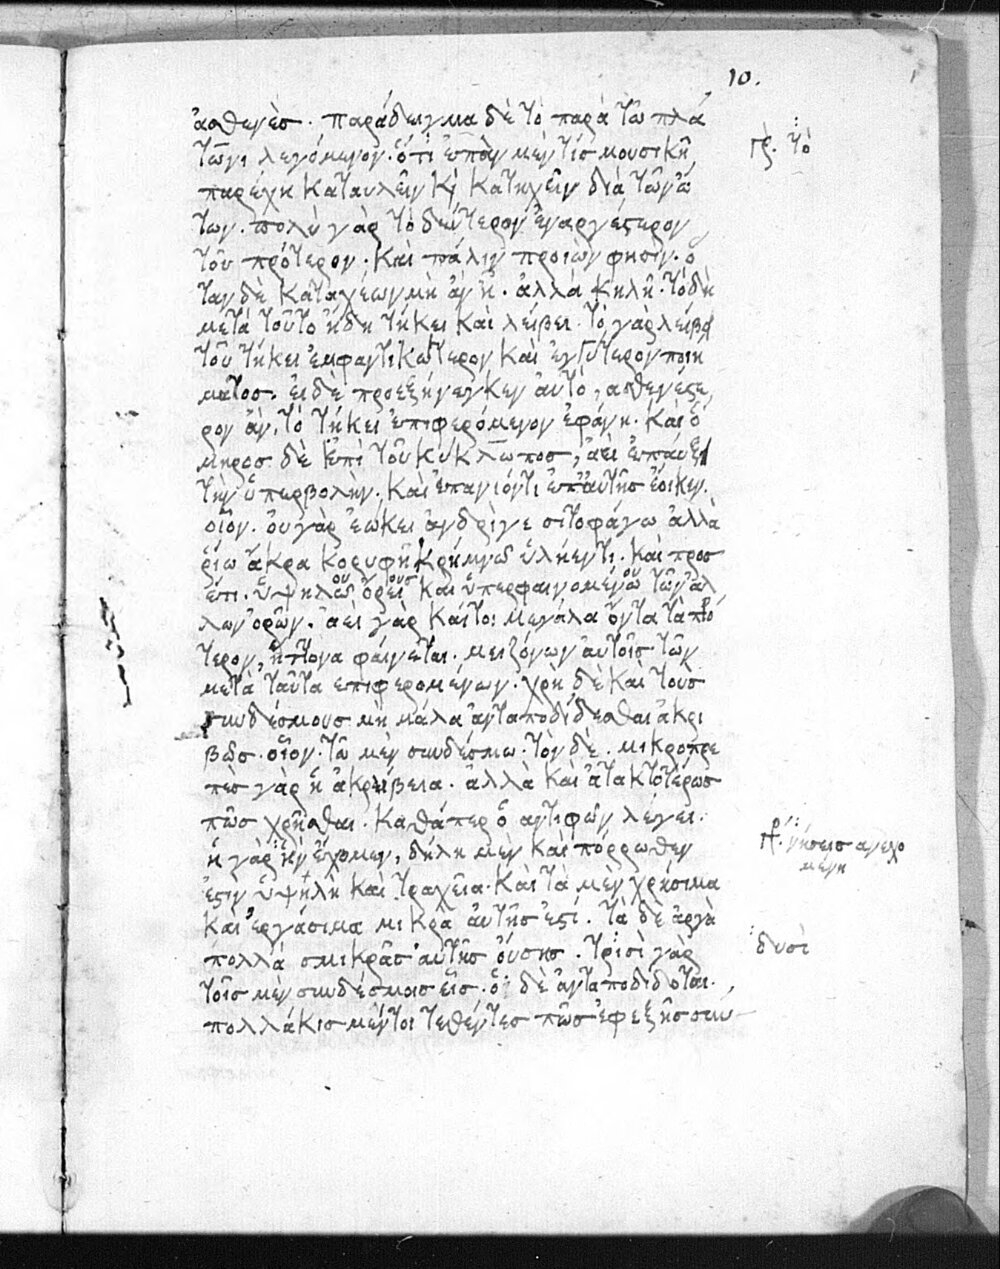 10.
ἀσθενὲσ. παράδειγμα δὲ τὸ παρὰ τῶ πλά
τωνι λεγόμενον. ὅτι ἐπὰν μέν τίσ μουσικῆ
παρέχη καταυλεῖν καὶ καταχεῖν διὰ τῶν ὤ
των. πολὺ γὰρ τὸ δεύτερον ἐναργέστερον
τοῦ πρότερον. καὶ πάλιν προϊὼν φησίν. ὅ
ταν δὲ καταχέων μὴ ἀνῆ. ἀλλὰ κηλῆ. τὸ δὴ
μετὰ τοῦτο ἤδη τήκει καὶ λείβει. τὸ γὰρ λείβει
τοῦ τήκει ἐμφαντικώτερον καὶ ἐγγύτερον ποιή
ματοσ. εἰ δὲ προεξήνεγκεν αὐτό, ἀσθενέστε
ρον ἂν, τὸ τήκει ἐπιφερόμενον ἐφάνη. καὶ ὅ
μηροσ δὲ ἐπὶ τοῦ κύκλωποσ, ἀεὶ ἐπαύξει
τὴν ὑπερβολὴν. καὶ ἐπανιόντι ἐπ' αὐτῆσ ἔοικεν.
οἷον. οὐ γὰρ ἐώκει ἀνδρί γε σιτοφάγω ἀλλὰ
ῥίω ἄκρα κορυφῆ κρημνῶ ὑλήεντι. καὶ προσ
έτι. ὑψηλοῦ ὄρουσ καὶ ὑπερφαινομένου τῶν ἄλ
λων ὀρῶν. ἀεὶ γὰρ καίτοι μεγάλα ὄντα τὰ πρό
τερον, ἥττονα φαίνεται. μειζόνων αὐτοῖσ τῶν
μετὰ ταῦτα ἐπιφερομένων. χρὴ δὲ καὶ τοὺσ
συνδέσμουσ μὴ μάλα ἀνταποδίδοσθαι ἀκρι
βῶσ. οἷον. τῶ μὲν συνδέσμω. τὸν δέ. μικροπρε
πὲσ γὰρ ἡ ἀκρίβεια. ἀλλὰ καὶ ἀτακτοτέρωσ
πῶσ χρῆσθαι. καθάπερ ὁ ἀντιφῶν λέγει.
ἡ γὰρ ἣν ἔχομεν, δήλη μὲν καὶ πόρρωθεν
ἐστιν ὑψηλὴ καὶ τραχεῖα. καὶ τὰ μὲν χρήσιμα
καὶ ἐργάσιμα μικρὰ αὐτῆσ ἐστί. τὰ δὲ ἀργὰ
πολλὰ σμικρᾶσ αὐτῆσ οὔσησ. τρισὶ γὰρ
τοῖσ μὲν συνδέσμοισ εἷσ. ὁ δὲ ἀνταποδίδοται.
πολλάκισ μέντοι τεθέντεσ πῶσ ἐφεξῆσ συν
τὸ
δυσὶ